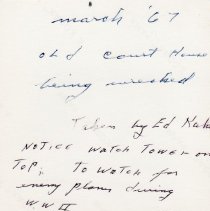 march '67
old court House
being wrecked
Taken by Ed
NOTICE WATCH TOWER on
TOP, TO WATCH for
enemy planes during
WW II